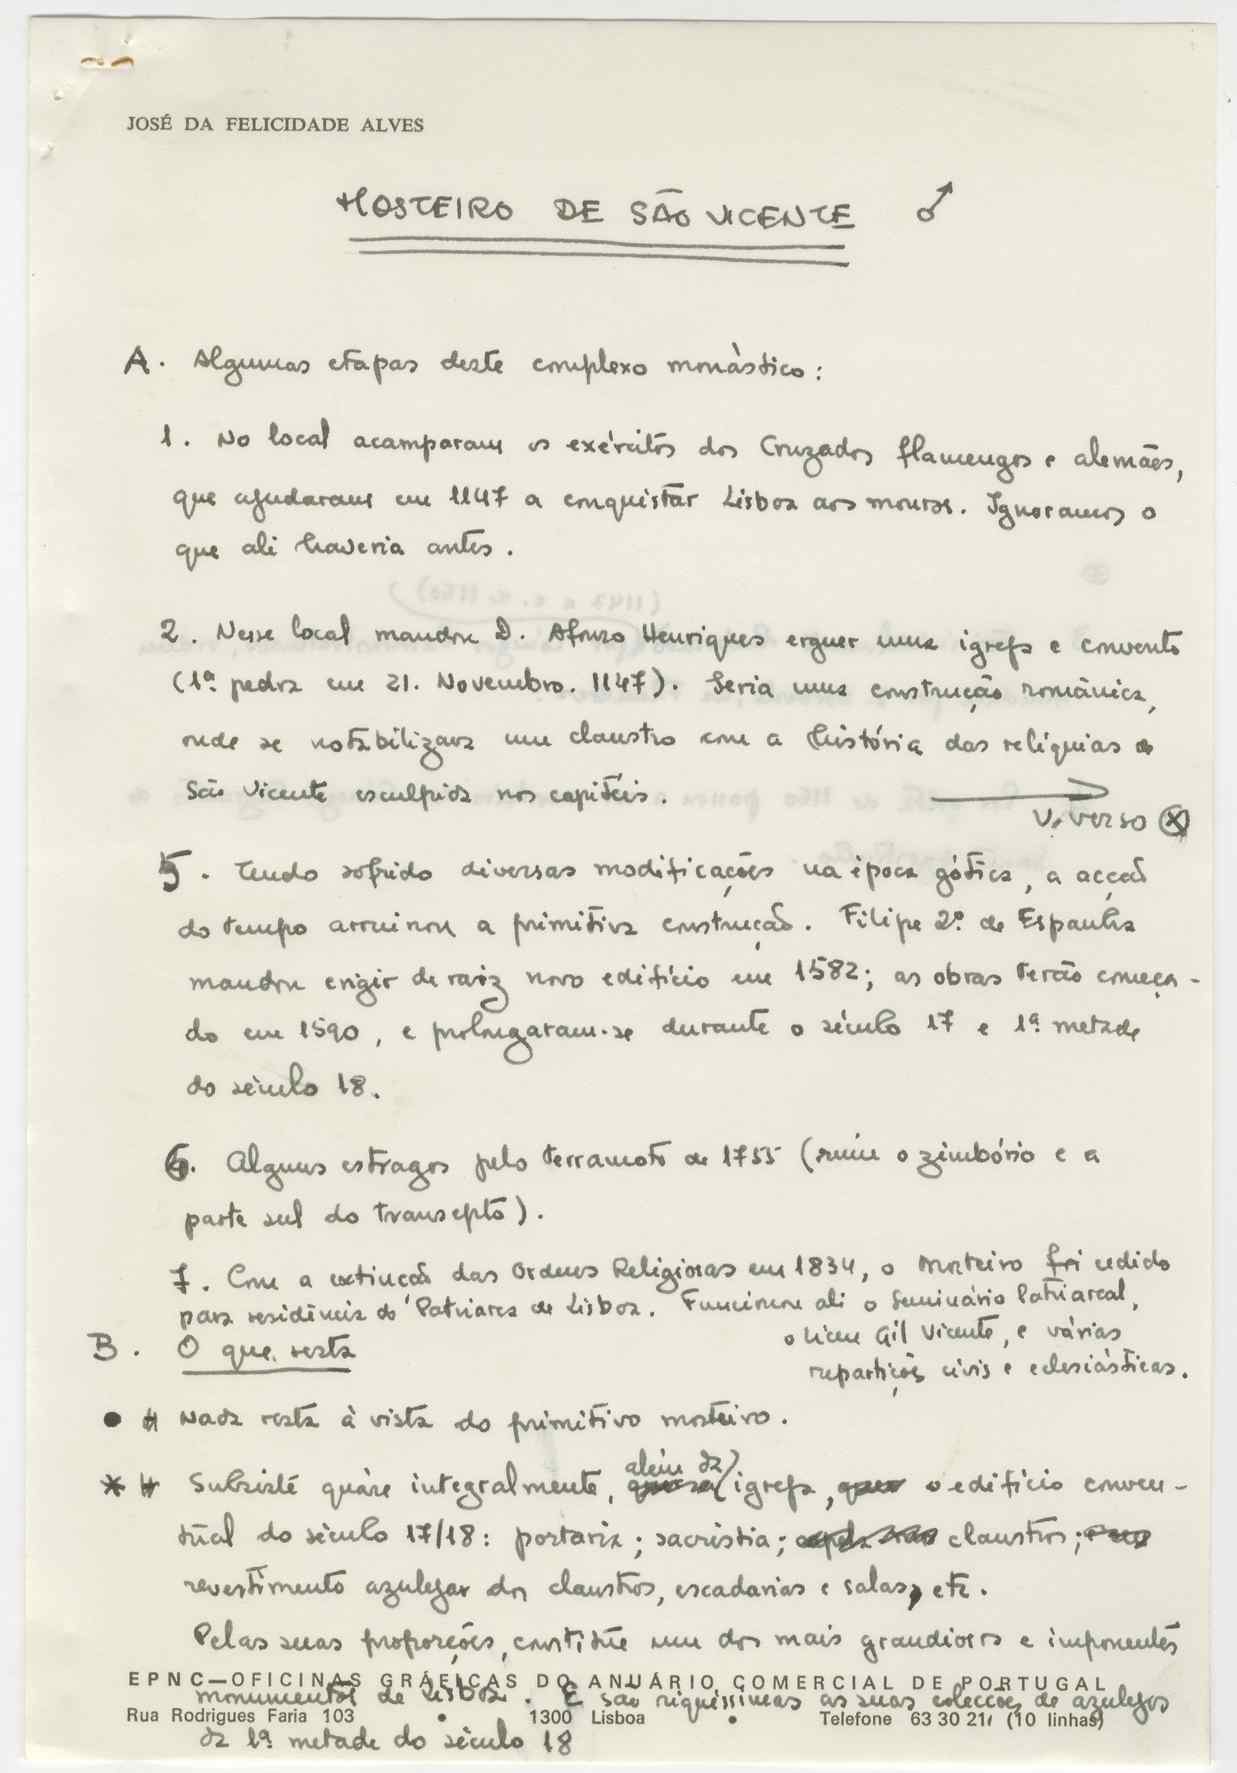 JOSÉ DA FELICIDADE ALVES
MOSTEIRO DE SÃO VICENTE ♂
A. Algumas etapas deste complexo monàstico:
1. No local acamparam os exércitos dos Cruzados flamengos e alemães,
que ajudaram em 1147 a conquistar Lisboa aos mouros. Ignoramos o
que ali haveria antes.
2. Nesse local mandou D. Afonso Henriques erguer uma igreja e convento
(1ª pedra em 21. Novembro. 1147). Seria uma construção românica,
onde se notabilizava um claustro com a história das relíquias de
São Vicente esculpida nos capitéis.
V. verso ⊗
5. Tendo sofrido diversas modificações na época gótica, a acção
do tempo arruinou a primitiva construção. Filipe 2º de Espanha
mandou erigir de raiz novo edifício em 1582; as obras terão começa-
do em 1590, e prolongaram-se durante o século 17 e 1ª metade
do século 18.
6. Alguns estragos pelo terramoto de 1755 (ruiu o zimbório e a
parte sul do transepto).
7. Com a extinção das Ordens Religiosas em 1834, o mosteiro foi cedido
para residência do Patriarca de Lisboa. Funcionou ali o Seminário Patriarcal,
o liceu Gil Vicente, e várias
repartições civis e eclesiásticas.
B. O que resta
● # Nada resta à vista do primitivo mosteiro.
* # Subsiste quàse integralmente, além da igreja, o edifício conven-
tual do século 17/18: portaria; sacristia; claustros;
revestimento azulejar dos claustros, escadarias e salas, etc.
Pelas suas proporções, constitue um dos mais grandiosos e imponentes
monumentos de Lisboa. E são riquíssimas as suas colecções de azulejos
da 1ª metade do século 18
EPNC—OFICINAS GRÁFICAS DO ANUÁRIO COMERCIAL DE PORTUGAL
Rua Rodrigues Faria 103 • 1300 Lisboa • Telefone 63 30 21 (10 linhas)